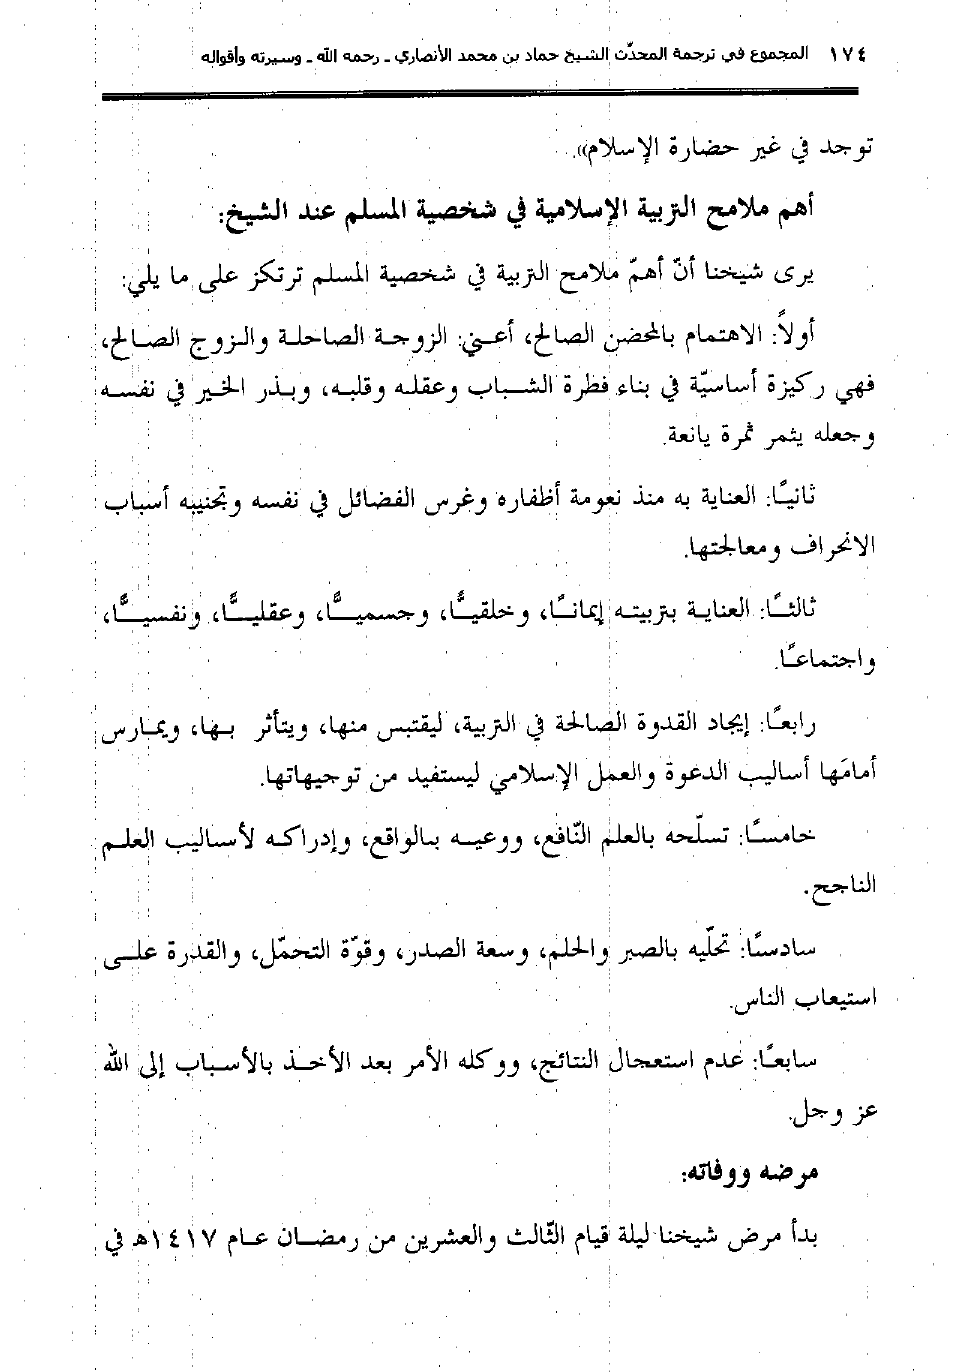 ١٧٤ المجموع في ترجمة المحدّث الشيخ حماد بن محمد الأنصاري ـ رحمه الله ـ وسيرته وأقواله
توجد في غير حضارة الإسلام)).
أهم ملامح التربية الإسلامية في شخصية المسلم عند الشيخ:
يرى شيخنا أنّ أهمّ ملامح التربية في شخصية المسلم ترتكز على ما يلي:
أولاً: الاهتمام بالمحضن الصالح، أعني: الزوجة الصاحلة والزوج الصالح،
فهي ركيزة أساسيّة في بناء فطرة الشباب وعقله وقلبه، وبذر الخير في نفسه
وجعله يثمر ثمرة يانعة.
ثانيًا: العناية به منذ نعومة أظفاره وغرس الفضائل في نفسه وتجنيبه أسباب
الانحراف ومعالجتها.
ثالثًا: العناية بتربيته إيمانًا، وخلقيًّا، وجسميًّا، وعقليًّا، ونفسيًّا،
واجتماعًا.
رابعًا: إيجاد القدوة الصالحة في التربية، ليقتبس منها، ويتأثر بها، ويمارس
أمامَها أساليب الدعوة والعمل الإسلامي ليستفيد من توجيهاتها.
خامسًا: تسلّحه بالعلم النّافع، ووعيه بالواقع، وإدراكه لأساليب العلم
الناجح.
سادسًا: تحلّيه بالصبر والحلم، وسعة الصدر، وقوّة التحمّل، والقدرة على
استيعاب الناس.
سابعًا: عدم استعجال النتائج، ووكله الأمر بعد الأخذ بالأسباب إلى الله
عز وجل.
مرضه ووفاته:
بدأ مرض شيخنا ليلة قيام الثّالث والعشرين من رمضان عام ١٤١٧هـ في